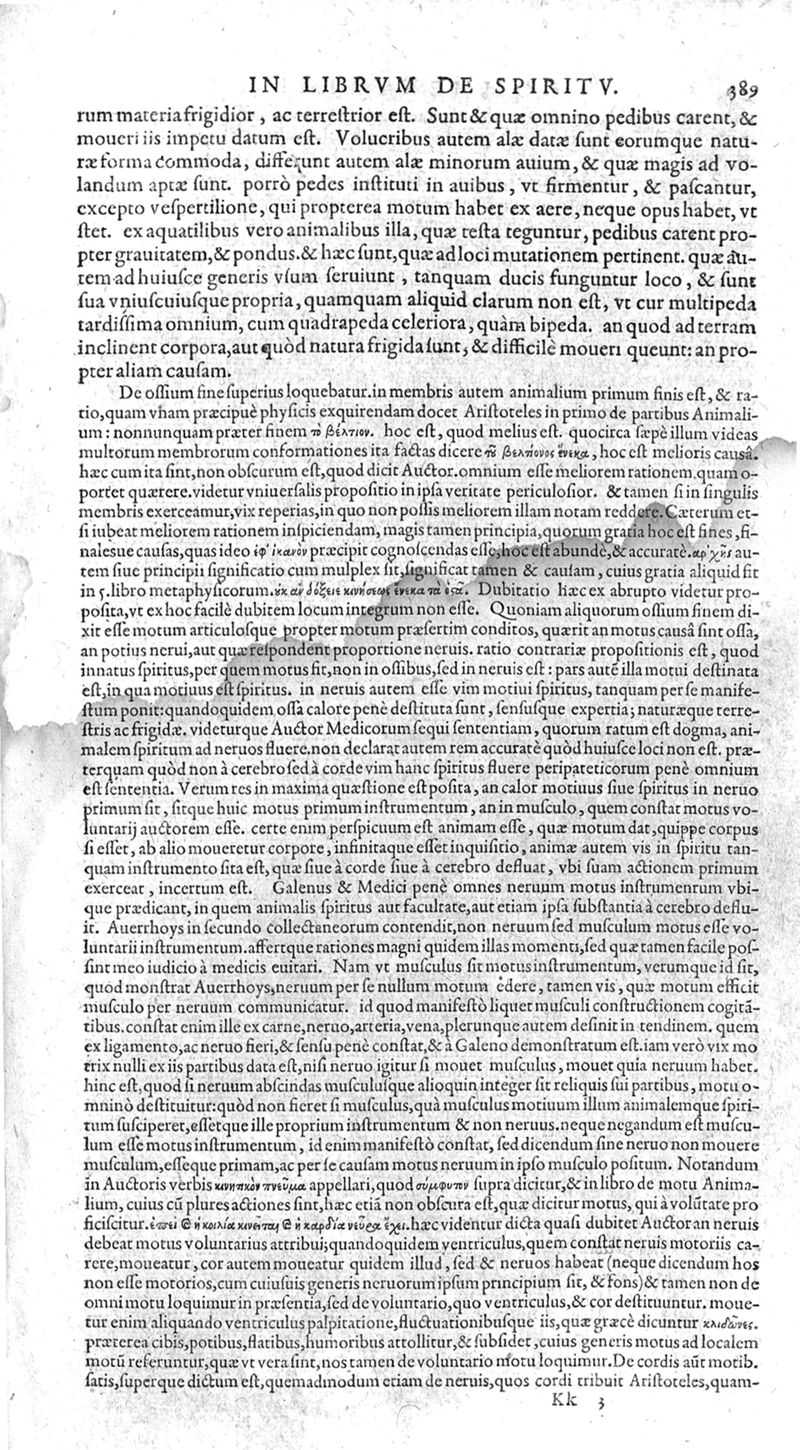 IN LIBRVM DE SPIRITV. 389
rum materia frigidior, ac terreſtrior eſt. Sunt & quæ omnino pedibus carent, &
moueri iis impetu datum eſt. Volucribus autem alæ datæ ſunt eorumque natu-
ræ forma commoda, differunt autem alæ minorum auium, & quæ magis ad vo-
landum aptæ ſunt. porrò pedes inſtituti in auibus, vt firmentur, & paſcantur,
excepto veſpertilione, qui propterea motum habet ex aere, neque opus habet, vt
ſtet. ex aquatilibus vero animalibus illa, quæ teſta teguntur, pedibus carent pro-
pter grauitatem, & pondus. & hæc ſunt, quæ ad loci mutationem pertinent. quæ au-
tem ad huiuſce generis vſum ſeruiunt, tanquam ducis funguntur loco, & ſunt
ſua vniuſcuiuſque propria, quamquam aliquid clarum non eſt, vt cur multipeda
tardiſſima omnium, cum quadrapeda celeriora, quàm bipeda. an quod ad terram
inclinent corpora, aut quòd natura frigida ſunt, & difficilè moueri queunt: an pro-
pter aliam cauſam.
De oſſium fine ſuperius loquebatur. in membris autem animalium primum finis eſt, & ra-
tio, quam vnam præcipuè phyſicis exquirendam docet Ariſtoteles in primo de partibus Animali-
um: nonnunquam præter finem τὸ βέλτιον. hoc eſt, quod melius eſt. quocirca ſæpè illum videas
multorum membrorum conformationes ita factas dicere τοῦ βελτίονος ἕνεκα, hoc eſt melioris causâ.
hæc cum ita ſint, non obſcurum eſt, quod dicit Auctor. omnium eſſe meliorem rationem. quam o-
portet quærere. videtur vniuerſalis propoſitio in ipſa veritate periculoſior. & tamen ſi in ſingulis
membris exerceamur, vix reperias, in quo non poſſis meliorem illam notam reddere. Cæterum et-
ſi iubeat meliorem rationem inſpiciendam, magis tamen principia, quorum gratia hoc eſt fines, fi-
nalesue cauſas, quas ideo ἐφ' ἱκανὸν præcipit cognoſcendas eſſe, hoc eſt abundè, & accuratè. ἀρχῆς au-
tem ſiue principii ſignificatio cum mulplex ſit, ſignificat tamen & cauſam, cuius gratia aliquid fit
in 5. libro metaphyſicorum. οὐκ ἂν δόξειε κινήσεως ἕνεκα τὰ ὀστᾶ. Dubitatio hæc ex abrupto videtur pro-
poſita, vt ex hoc facilè dubitem locum integrum non eſſe. Quoniam aliquorum oſſium finem di-
xit eſſe motum articuloſque propter motum præſertim conditos, quærit an motus causâ ſint oſſa,
an potius nerui, aut quæ reſpondent proportione neruis. ratio contrariæ propoſitionis eſt, quod
innatus ſpiritus, per quem motus fit, non in oſſibus, ſed in neruis eſt: pars autē illa motui deſtinata
eſt, in qua motiuus eſt ſpiritus. in neruis autem eſſe vim motiui ſpiritus, tanquam per ſe manife-
ſtum ponit: quandoquidem oſſa calore penè deſtituta ſunt, ſenſuſque expertia; naturæque terre-
ſtris ac frigidæ. videturque Auctor Medicorum ſequi ſententiam, quorum ratum eſt dogma, ani-
malem ſpiritum ad neruos fluere. non declarat autem rem accuratè quòd huiuſce loci non eſt. præ-
terquam quòd non à cerebro ſed à corde vim hanc ſpiritus fluere peripateticorum penè omnium
eſt ſententia. Verum res in maxima quæſtione eſt poſita, an calor motiuus ſiue ſpiritus in neruo
primum ſit, ſitque huic motus primum inſtrumentum, an in muſculo, quem conſtat motus vo-
luntarij auctorem eſſe. certe enim perſpicuum eſt animam eſſe, quæ motum dat, quippe corpus
ſi eſſet, ab alio moueretur corpore, infinitaque eſſet inquiſitio, animæ autem vis in ſpiritu tan-
quam inſtrumento ſita eſt, quæ ſiue à corde ſiue à cerebro defluat, vbi ſuam actionem primum
exerceat, incertum eſt. Galenus & Medici penè omnes neruum motus inſtrumenrum vbi-
que prædicant, in quem animalis ſpiritus aut facultate, aut etiam ipſa ſubſtantia à cerebro deflu-
it. Auerrhoys in ſecundo collectaneorum contendit, non neruum ſed muſculum motus eſſe vo-
luntarii inſtrumentum. affertque rationes magni quidem illas momenti, ſed quæ tamen facile poſ-
ſint meo iudicio à medicis euitari. Nam vt muſculus ſit motus inſtrumentum, verumque id ſit,
quod monſtrat Auerrhoys, neruum per ſe nullum motum edere, tamen vis, quæ motum efficit
muſculo per neruum communicatur. id quod manifeſtò liquet muſculi conſtructionem cogitā-
tibus. conſtat enim ille ex carne, neruo, arteria, vena, plerunque autem deſinit in tendinem. quem
ex ligamento, ac neruo fieri, & ſenſu penè conſtat, & à Galeno demonſtratum eſt. iam verò vix mo
trix nulli ex iis partibus data eſt, niſi neruo igitur ſi mouet muſculus, mouet quia neruum habet.
hinc eſt, quod ſi neruum abſcindas muſculuſque alioquin integer ſit reliquis ſui partibus, motu o-
mninò deſtituitur: quòd non fieret ſi muſculus, quà muſculus motiuum illum animalemque ſpiri-
tum ſuſciperet, eſſetque ille proprium inſtrumentum & non neruus. neque negandum eſt muſcu-
lum eſſe motus inſtrumentum, id enim manifeſtò conſtat, ſed dicendum ſine neruo non mouere
muſculum, eſſeque primam, ac per ſe cauſam motus neruum in ipſo muſculo poſitum. Notandum
in Auctoris verbis κινητικὸν πνεῦμα appellari, quod σύμφυτον ſupra dicitur, & in libro de motu Anima-
lium, cuius cū plures actiones ſint, hæc etiā non obſcura eſt, quæ dicitur motus, qui à volūtate pro
ficiſcitur. ἐπεὶ καὶ ἡ κοιλία κινεῖται, καὶ ἡ καρδία νεῦρα ἔχει. hæc videntur dicta quaſi dubitet Auctor an neruis
debeat motus voluntarius attribui; quandoquidem ventriculus, quem conſtat neruis motoriis ca-
rere, moueatur, cor autem moueatur quidem illud, ſed & neruos habeat (neque dicendum hos
non eſſe motorios, cum cuiuſuis generis neruorum ipſum principium ſit, & fons) & tamen non de
omni motu loquimur in præſentia, ſed de voluntario, quo ventriculus, & cor deſtituuntur. moue-
tur enim aliquando ventriculus palpitatione, fluctuationibuſque iis, quæ græcè dicuntur κλύδωνες.
præterea cibis, potibus, flatibus, humoribus attollitur, & ſubſidet, cuius generis motus ad localem
motū referuntur, quæ vt vera ſint, nos tamen de voluntario motu loquimur. De cordis aūt motib.
ſatis, ſuperque dictum eſt, quemadmodum etiam de neruis, quos cordi tribuit Ariſtoteles, quam-
Kk 3